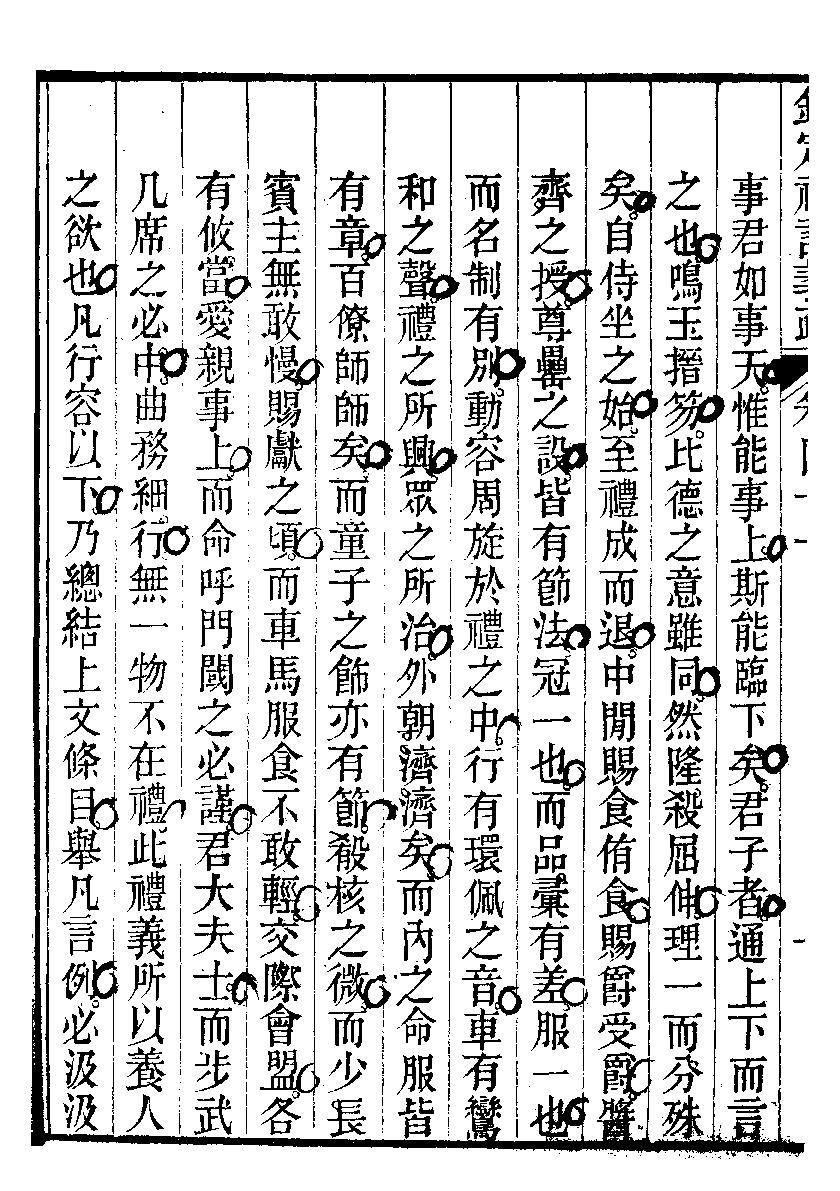 欽定禮記義疏 卷四十一
事君如事天惟能事上斯能臨下矣君子者通上下而言
之也鳴玉搢笏比德之意雖同然隆殺屈伸理一而分殊
矣自侍坐之始至禮成而退中閒賜食侑食賜爵受爵醬
齊之授尊罍之設皆有節法冠一也而品彚有差服一也
而名制有別動容周旋於禮之中行有環佩之音車有鸞
和之聲禮之所興眾之所治外朝濟濟矣而內之命服皆
有章百僚師師矣而童子之飾亦有節殽核之微而少長
賓主無敢慢賜獻之頃而車馬服食不敢輕交際會盟各
有攸當愛親事上而命呼門闑之必謹君大夫士而步武
几席之必中曲務細行無一物不在禮此禮義所以養人
之欲也凡行容以下乃總結上文條目舉凡言例必汲汲